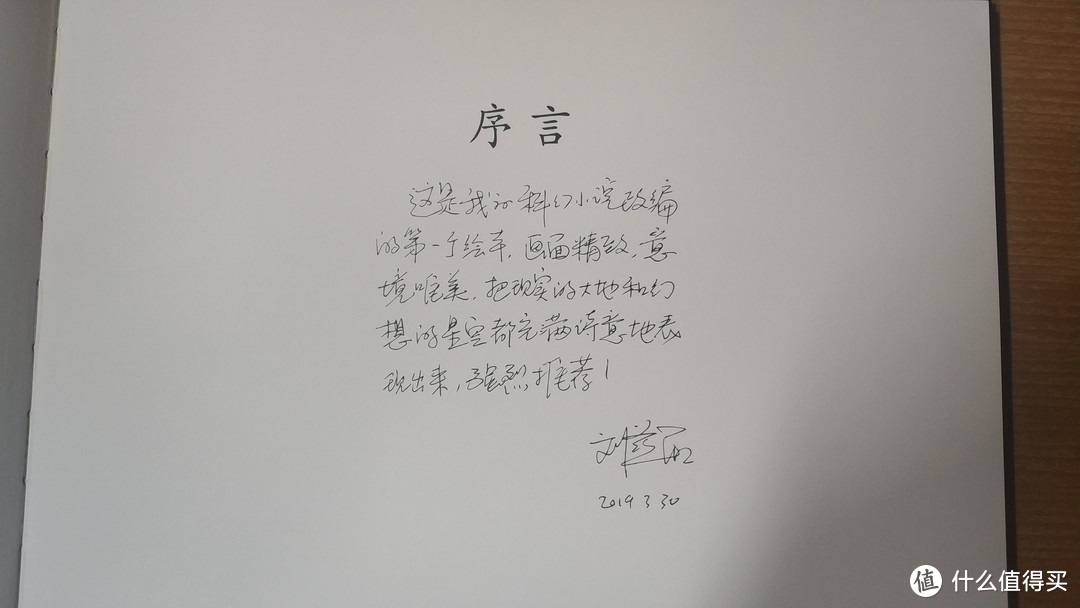 序言
这是我的科幻小说改编
的第一个绘本，画面精致，意
境唯美，把现实的大地和幻
想的星空都充满诗意地表
现出来，强烈推荐！
刘慈欣
2019 3 30
值 什么值得买